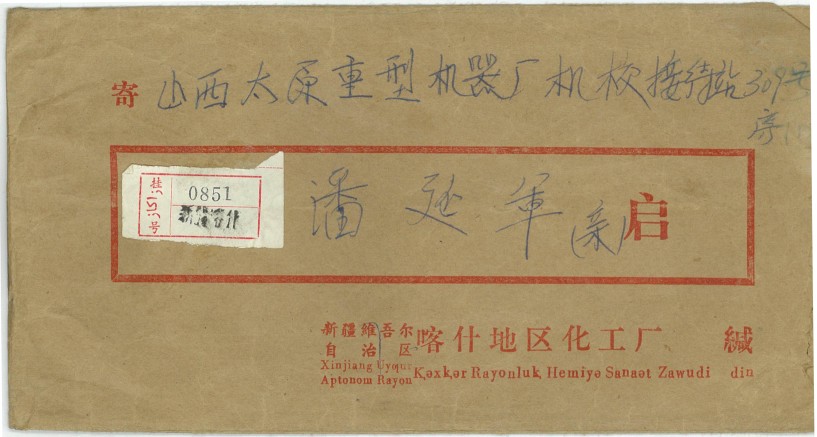 寄 山西太原重型机器厂机校接待站309号
挂号
0851
新疆喀什
潘延军(亲)启
新疆維吾尔自治区 喀什地区化工厂 缄
Xinjiang Uyƣur
Aptonom Rayon
Kəxkər Rayonluk Hemiyə Sanaət Zawudi din